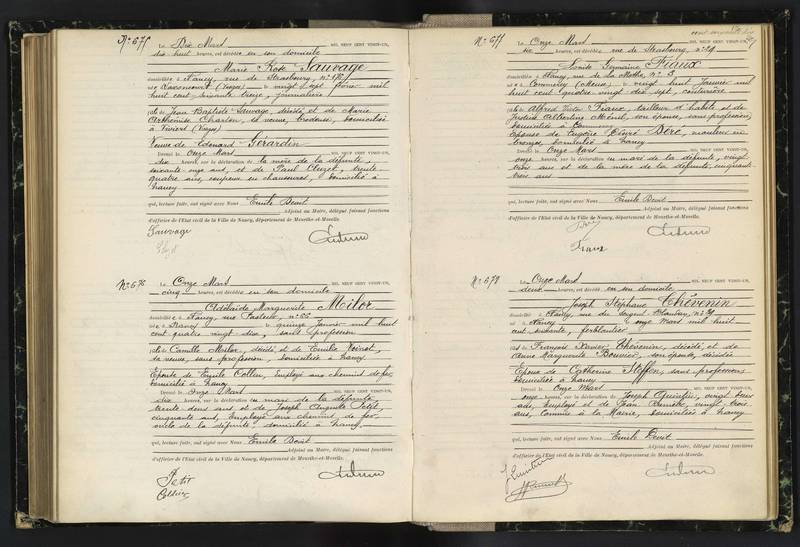 N° 675
Le Dix Mars MIL NEUF CENT VINGT-UN,
dix huit heures, est décédée en son domicile
Marie Rose Sauvage
domiciliée à Nancy, rue de Strasbourg, n°
née à (Vosges) le vingt sept février mil
huit cent soixante treize, journalière
fille de Jean Baptiste Sauvage, décédé et de Marie
Charlon, sa veuve, brodeuse, domiciliée
à Viviers (Vosges)
Veuve de Edouard Gérardin
Dressé le Onze Mars MIL NEUF CENT VINGT-UN,
dix heures, sur la déclaration de la mère de la défunte,
soixante onze ans, et de Paul trente
quatre ans, coupeur en chaussures, domicilié à
Nancy
qui, lecture faite, ont signé avec Nous Emile
Adjoint au Maire, délégué faisant fonctions
d'officier de l'Etat civil de la Ville de Nancy, département de Meurthe-et-Moselle.
Sauvage
N° 676
Le Onze Mars MIL NEUF CENT VINGT-UN,
cinq heures, est décédée en son domicile
Adélaïde Marguerite
domiciliée à Nancy, rue Pasteur, n°
née à Nancy le quinze janvier mil huit
cent quatre vingt dix, sans profession
fille de Camille décédé et de Emilie
sa veuve, sans profession, domiciliée à Nancy
Epouse de Emile Collin, Employé aux chemins de fer
domicilié à Nancy
Dressé le Onze Mars MIL NEUF CENT VINGT-UN,
dix heures, sur la déclaration du mari de la défunte,
trente deux ans et de Joseph Auguste Petit,
cinquante ans, Employé aux chemins de fer
oncle de la défunte, domicilié à Nancy,
qui, lecture faite, ont signé avec Nous Emile
Adjoint au Maire, délégué faisant fonctions
d'officier de l'Etat civil de la Ville de Nancy, département de Meurthe-et-Moselle.
Petit
Collin
N° 677
Le Onze Mars MIL NEUF CENT VINGT-UN,
six heures, est décédée rue de Strasbourg, n°
Germaine Friaux
domiciliée à Nancy, rue de la Mothe, n° 3
née à Commercy (Meuse) le vingt huit Janvier mil
huit cent quatre vingt dix sept, couturière
fille de Alfred Victor Friaux, tailleur d'habits et de
Albertine son épouse, sans profession,
domiciliés à
Epouse de Eugène
bronzes, domicilié à Nancy
Dressé le Onze Mars MIL NEUF CENT VINGT-UN,
onze heures, sur la déclaration du mari de la défunte, vingt
trois ans et de la mère de la défunte, cinquante
trois ans
qui, lecture faite, ont signé avec Nous Emile
Adjoint au Maire, délégué faisant fonctions
d'officier de l'Etat civil de la Ville de Nancy, département de Meurthe-et-Moselle.
N° 678
Le Onze Mars MIL NEUF CENT VINGT-UN,
deux heures, est décédé en son domicile
Joseph Stéphane Thévenin
domicilié à Nancy, rue du Sergent Blandan, n°
né à Nancy le onze Mars mil huit
cent soixante, ferblantier
fils de François Xavier Thévenin, décédé, et de
Anne Marguerite Bouvier, son épouse, décédée
Epoux de Catherine Steffen, sans profession
domiciliée à Nancy
Dressé le Onze Mars MIL NEUF CENT VINGT-UN,
onze heures, sur la déclaration de Joseph vingt deux
ans, Employé et de Jean vingt trois
ans, Commis à la Mairie, domiciliés à Nancy
qui, lecture faite, ont signé avec Nous Emile
Adjoint au Maire, délégué faisant fonctions
d'officier de l'Etat civil de la Ville de Nancy, département de Meurthe-et-Moselle.